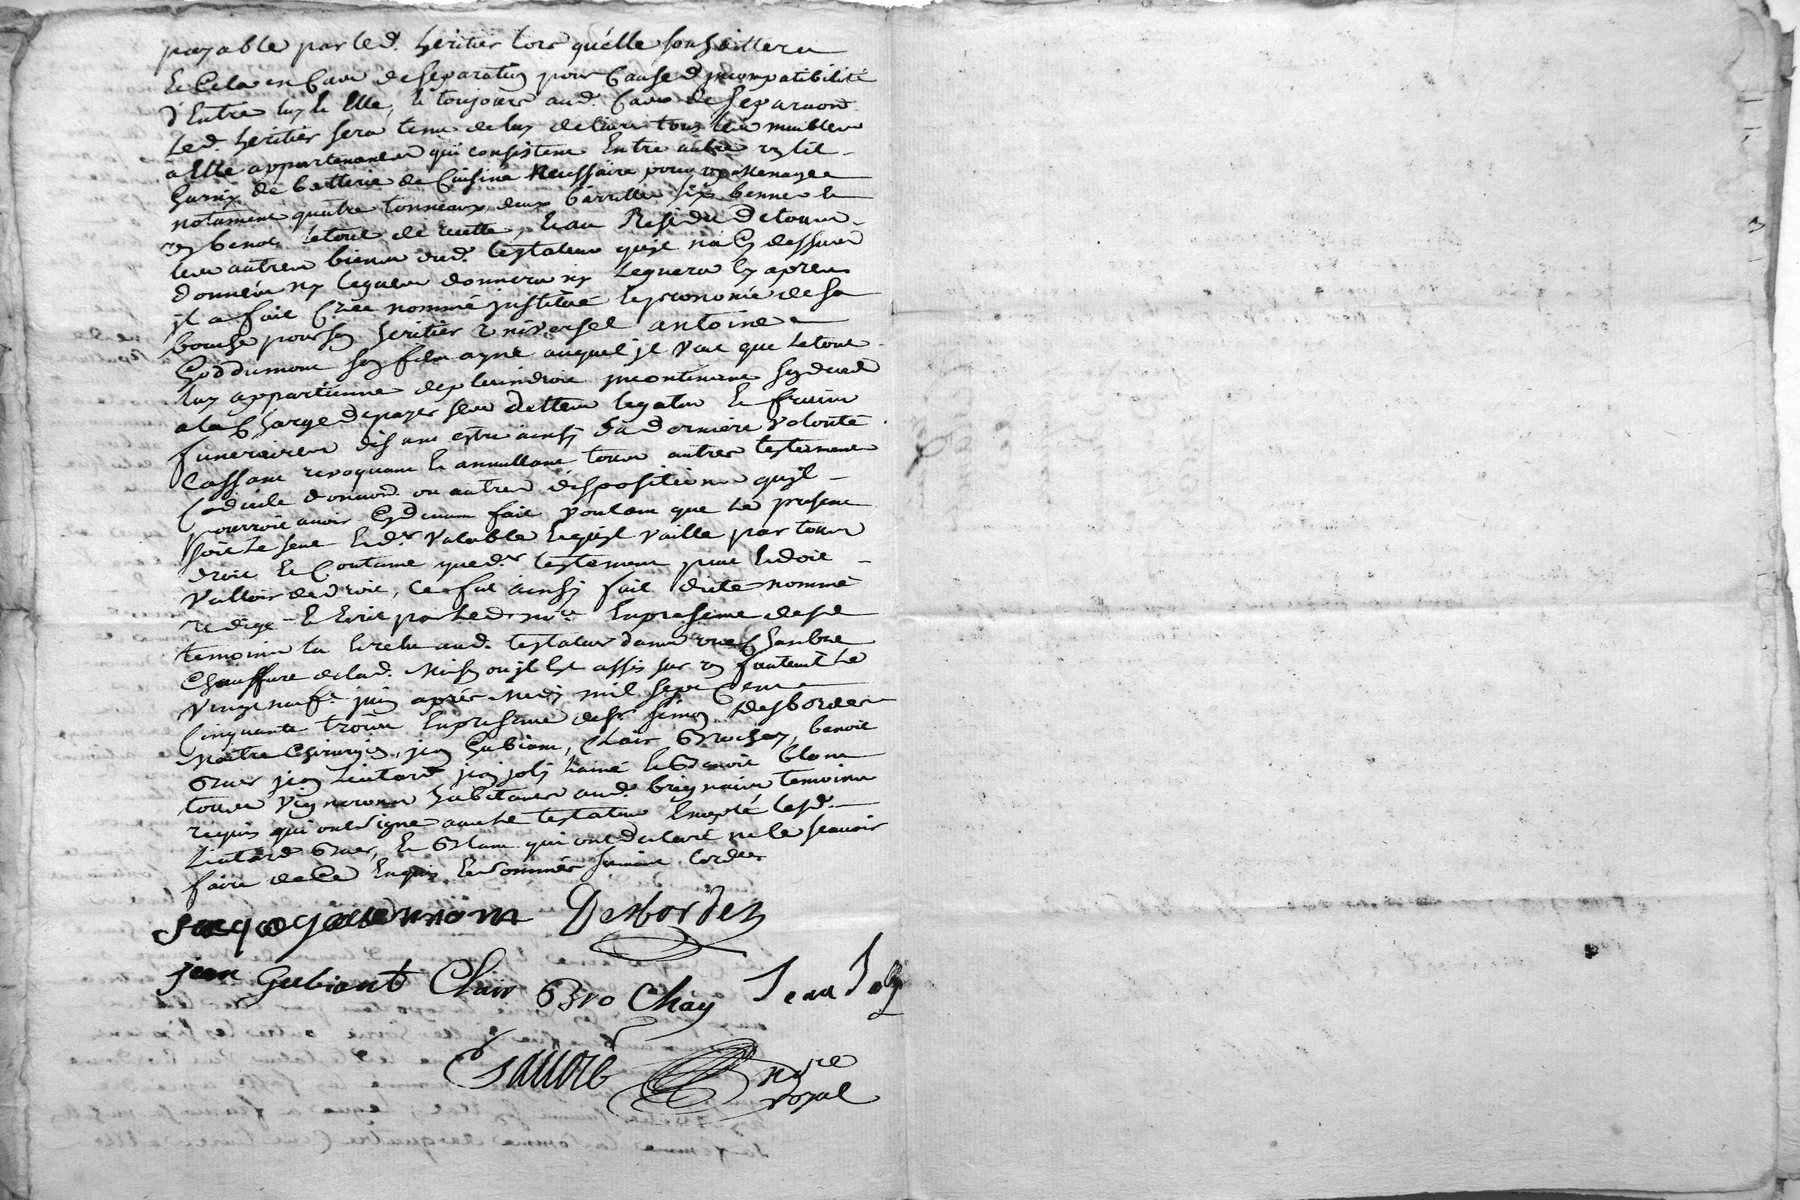 payable par led. heritier lors quelle souhaittera
Et Cela en Cas de separation pour Cause d'jncompatibilité
d'Entre luy Et Elle, Et toujours aud. Cas de separaon
Led. heritier sera tenu de luy delivrer tous les meubles
a Elle appartenans qui consistent Entre autre un lit
Garny de batterie de Cuisine Necessaire pour un Menage
notament quatre tonneaux deux barrilles six bennes Et
un benot letout de cuette, Et au Residu de tous
les autres biens dud. testateur quil n'a Cy dessus
donnés ny legués donnera ny Leguera Cy apres
jl a fait Créé nommé jnstitué Et prononcé de sa
bouche pour son heritier universel antoine
Goddumont son fils ayné auquel jl Veut que Letout
luy appartienne des leurs droit jncontinent son deced
a la Charge de payer ses dettes legats Et fraix
funeraires disant estre ainsy sa derniere Volonté
Cassant revoquant Et annullant tous autres testament
Codicile donaon. ou autres dispositions quil
pourroit avoir Cy devant fait voulant que Le present
soit Le seul Et der. Valable Et quil vaille par tous
droit Et Coutume que der. testament peut Et doit
Valloir de droit, Ce fut ainsy fait dicté nommé
redigé Et Ecrit par Led. nore. En presence desd.
temoins lu Et relu aud. testateur dans une Chambre
Chauffure de lad. Maison ou jl Est assis sur un fauteuil Le
Vingt neufe. juin apres Midy mil sept Cent
Cinquante trois En presence de sr. simon Desbordes
Maitre Chirurgien, jean Gubiant, Clair Brochay, benoit
Bruer jean Lietard jean joly lainé Et Benoit blanc
tous Vignerons habitans aud. brignais temoins
requis qui ont signe avec Le testateur Excepté Lesd.
Lietard Bruer, Et Blanc qui ont declaré ne le scavoir
faire de Ce Enquis Et sommés suivant Lordce
Desbordes
jean Gubiant Clair Brochay Jean Joly
nore
royal